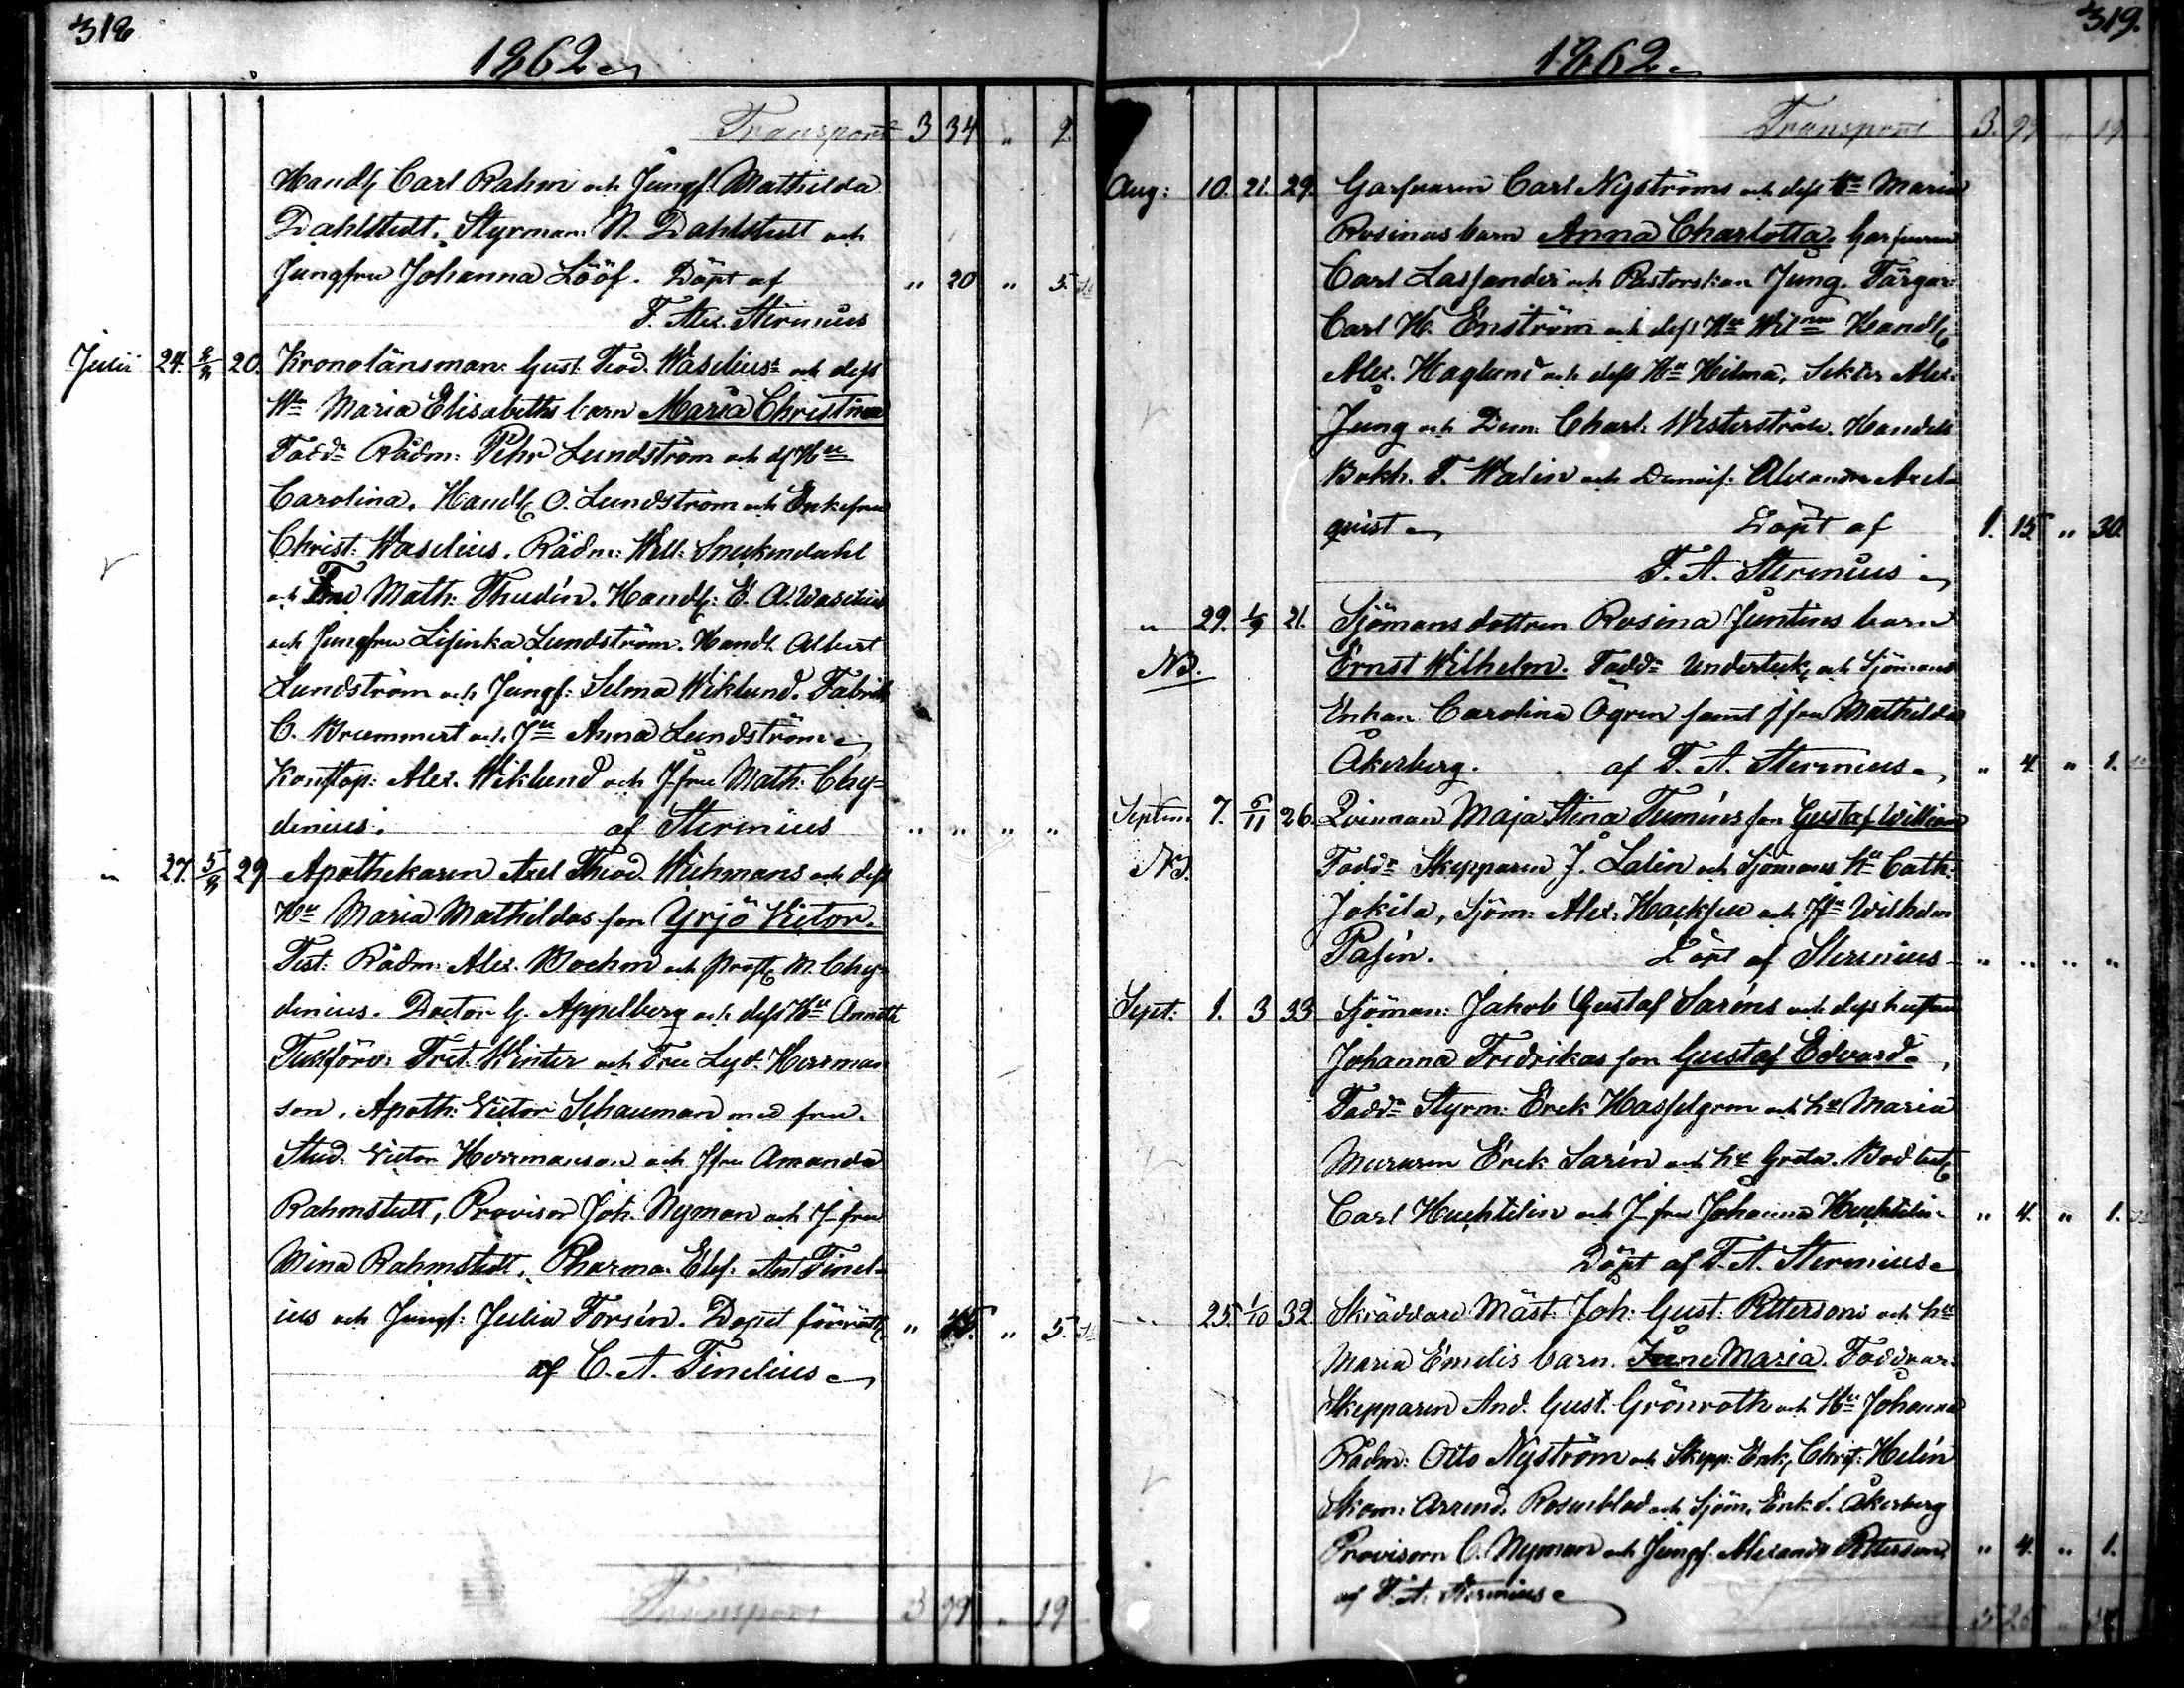 318
1862
Transport 3 34 " 9.
Handl Carl Rahm och Jungf. Mathilda
Dahlstedt. Styrman N. Dahlstedt och
Jungfru Johanna Lööf. Döpt af " 20 " 5.
F. Alex. Stirnius
Julii 24. 20. Kronolänsman: Gust. Teod. Waselius och dess
Hu Maria Elisabeths barn Maria Christina
Fadd: Rådm: Pehr Lundström och Hu
Carolina. Handl O. Lundström och Enkefru
Christ: Waselius. Rådm: Will:
och Fru Math: Thudén. Handl: E. A. Waselius
och Jungfru Lisinka Lundström. Handl. Albert
Lundström och Jungf: Selma Wiklund. Fabrik
C. och Jfru Anna Lundström
Alex. Wiklund och J-fru Math: Chy-
denius. af Stirnius " " " "
" 27. 5/8 29 Apothekaren Axel Theod. Wichmans och dess
Hu Maria Mathildas son Yrjö Victor.
Test: Rådm: Alex. Boehm och M. Chy-
denius. Doctor G. Appelberg och dess Hu Annette
Tullförv: Winter och Fru Lyd. Herrman-
son. Apoth: Victor Schauman med fru.
Stud. Victor Herrmanson och Jfru Amanda
Rahmstedt, Provisor Joh. Nyman och J-fru
Mina Rahmstedt. Pharma. Elev: Finel-
ius och Jungf: Julia Forsén. Dopet förrätt " 45. " 5.
af C. A. Finelius
Transport 3 99 " 19
319.
1862
Transport 3. 99 " 19
Aug: 10. 21. 29. Garfvaren Carl Nyströms och dess Hu Maria
Rosinas barn Anna Charlotta. Garfvaren
Carl och Pastorskan Jung. Färgar:
Carl H. Enström och dess Hu Handl
Alex. Haglund och dess Hu Hilma, Alex:
Jung och Dem: Charl: Westerstråle. Handels
Bokh. F. Walin och Demois: Alexandra Axel-
quist Döpt af 1. 15. " 30.
F. A. Stirnius
" 29. 4/9 21. Sjömans dottren Rosina Juntins barn
NB. Ernst Wilhelm. Fadd: och Sjömans
Enkan Carolina Ögren samt Jfru Mathilda
Åkerberg. af F. A. Stirnius " 4. " 1.
Septem. 7. 26. Qvinnan Maja Stina son Gustaf William
NB. Fadd: Skepparen J. Lalin och Sjömans hu Cath:
Jokila, Sjöm: Alex: och Jfru Wilhelm
Pasén. Döpt af Stirnius " " " "
Sept: 1. 3 33 Sjöman: Jakob Gustaf Saréns och dess hustru
Johanna Fredrikas son Gustaf Edvard
Fadd: Styrm: Erik Hasselgren och hu Maria
Muraren Erik Sarén och hu Greta.
Carl Huchtelin och J-fru Johanna Huchtelin " 4. " 1.
Döpt af F. A. Stirnius
" 25. 1/10 32. Skräddare Mäst: Joh: Gust: Pettersons och hu
Maria Emelis barn. Maria. Faddrar:
Skepparen And. Gust. Grönroth och Hu Johanna
Rådm: Otto Nyström och Skepp: Enk Christ: Helén
Rosenblad och Sjöm: Enk. S. Åkerberg
Provisorn C. Nyman och Jungf: Alexandra Petterson " 4. " 1.
af F. A. Stirnius